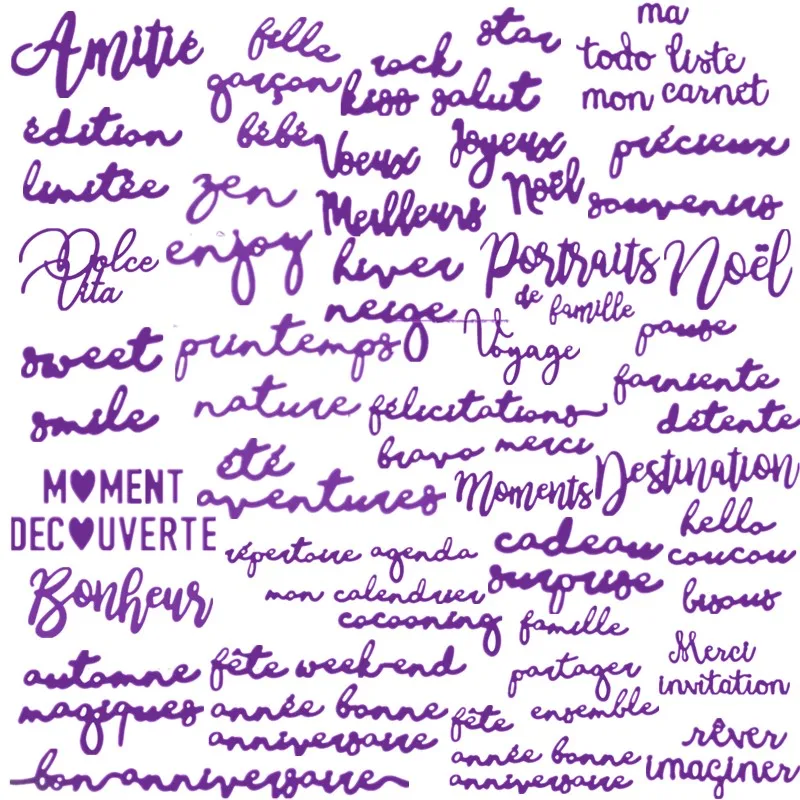 Amitié
fille
garçon
rock
star
kiss salut
ma
todo liste
mon carnet
édition
limitée
bébé
zen
Voeux
Meilleurs
Joyeux
Noël
précieux
souvenirs
Dolce
Vita
enjoy
hiver
neige
Portraits
de famille
Noël
Voyage
pause
sweet
smile
printemps
nature
farniente
détente
félicitations
bravo merci
été
aventures
Moments
Destination
M♥MENT
DEC♥UVERTE
répertoire agenda
mon calendrier
cocooning
cadeau
surprise
hello
coucou
bisous
Bonheur
famille
partager
ensemble
Merci
invitation
automne
magiques
fête week-end
année bonne
anniversaire
fête
année bonne
anniversaire
rêver
imaginer
bon anniversaire